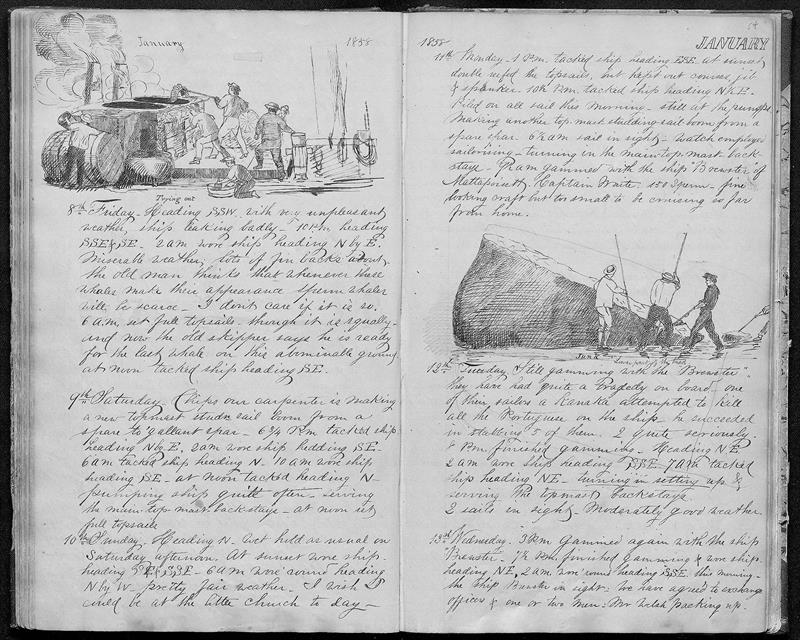 January 1858
Trying out
8th Friday. Heading SSW. with very unpleasant
weather, ship leaking badly – 10 P.m. heading
SSE & SE. 2 am wore ship heading N by E.
Miserable weather, lots of fin backs about,
the old man thinks that whenever these
whales make their appearance sperm whales
will be scarce – I dont care if it is so.
6 a.m. set full topsails, though it is squally –
and now the old skipper says he is ready
for the last whale on this abominable ground
at noon tacked ship heading SE.
9th Saturday. Chips our carpenter is making
a new topmast studn sail boom from a
spare to'gallant spar – 6 3/4 P.m tacked ship
heading N by E, 2 am wore ship heading SE –
6 am tacked ship heading N. 10 am wore ship
heading SE – at noon tacked heading N –
pumping ship quite often – serving
the main top mast backstays – at noon set
full topsails
10th Sunday. Heading N. Got held as usual on
Saturday afternoon. At sunset wore ship
heading SE & SSE – 6 am wore round heading
N by W – pretty fair weather. I wish I
could be at the little church to day –
1858 JANUARY
11th Monday – 1 P.m. tacked ship heading ESE. at sunset
double reefed the topsails, but kept out courses, jib
& spanker. 10 P.m. tacked ship heading N by E.
Piled on all sail this morning – still at the pumps
Making another top mast studding sail boom from a
spare spar. 6 1/2 am sail in sight – watch employed
sailorising – turning in the main top mast back-
stays – gammed with the ship "Brewster" of
Mattapoisett, Captain Waite. 150 Sperm – fine
looking craft but too small to be cruising so far
from home.
Junk
12th Tuesday. Still gamming with the "Brewster".
they have had quite a tragedy on board, one
of their sailors a Kanaka attempted to kill
all the Portuguese on the ship – he succeeded
in stabbing 5 of them. 2 quite seriously.
P.m. finished gamming – Heading NE
2 am wore ship heading SSE – 7 am tacked
ship heading NE – turning in setting up &
serving the topmast backstays.
2 sails in sight. Moderately good weather.
13th Wednesday. P.m gammed again with the ship
"Brewster". 7 1/2 P.m. finished gamming & wore ship.
heading NE, 2 am wore round heading SSE, this morning –
the Ship in sight: we have agreed to exchange
officers & one or two men: Mr Welsh packing up.